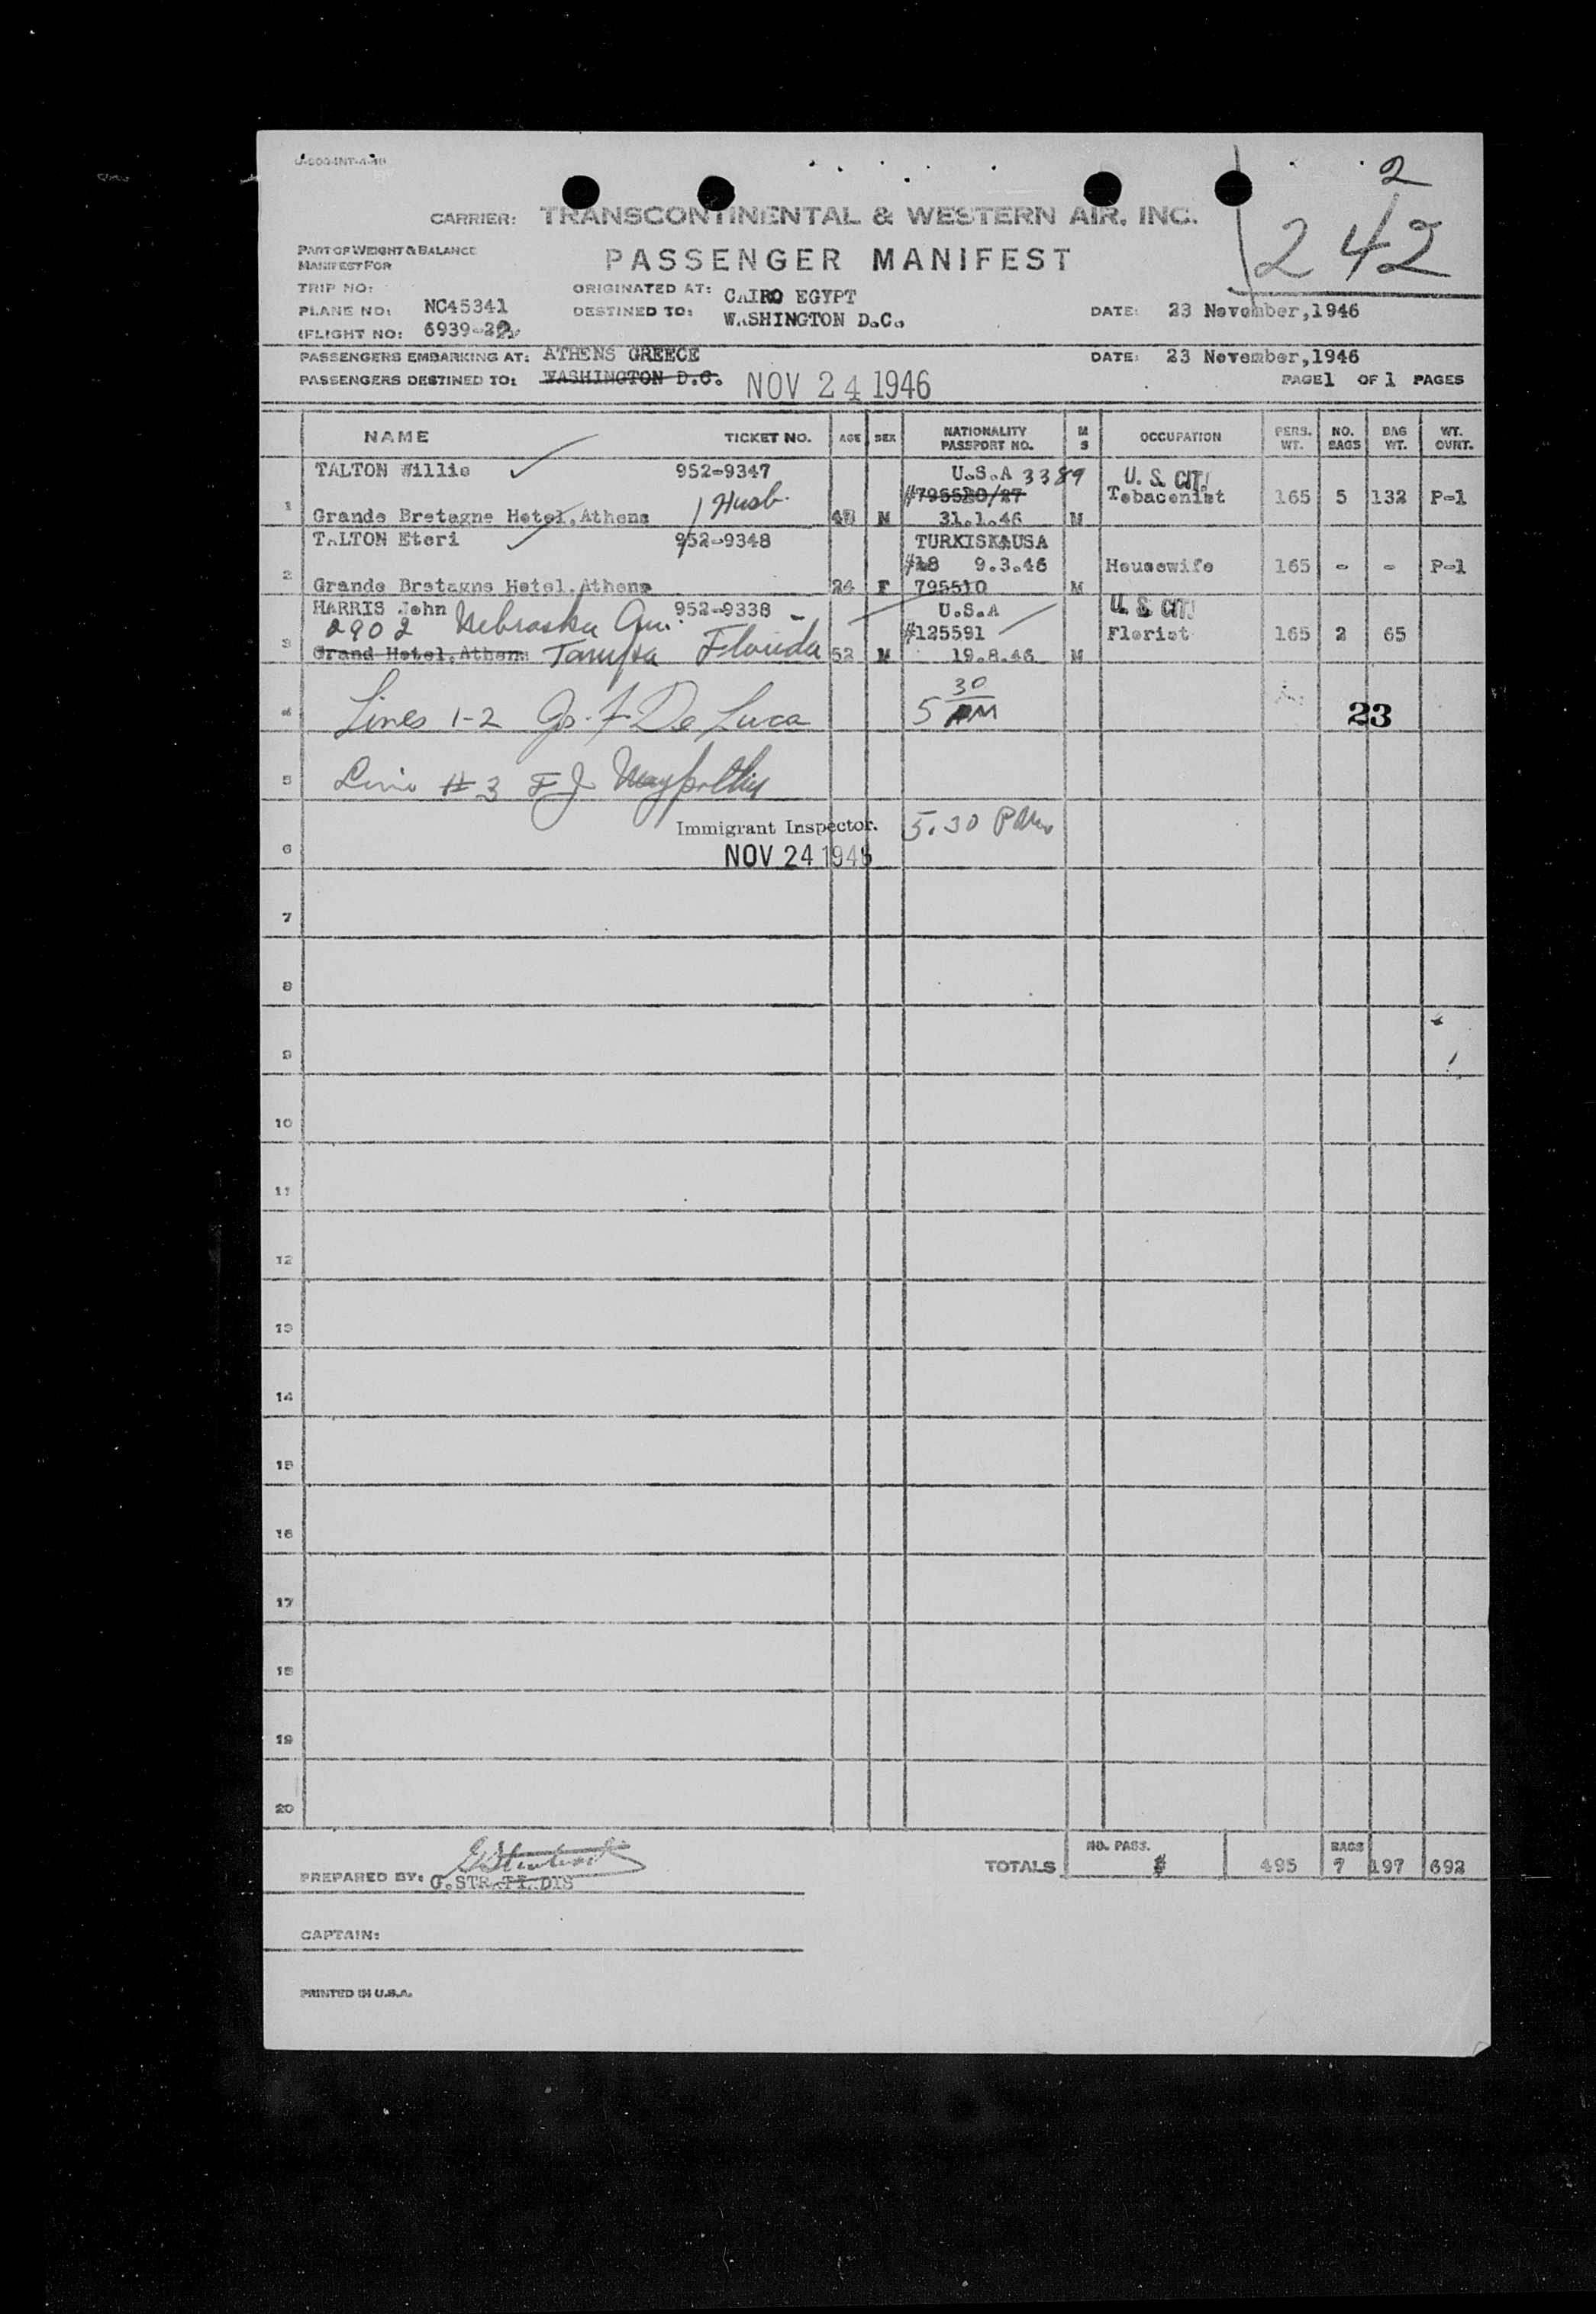 2
242
CARRIER: TRANSCONTINENTAL & WESTERN AIR, INC.
PART OF WEIGHT & BALANCE
MANIFEST FOR
PASSENGER MANIFEST
TRIP NO:
ORIGINATED AT: CAIRO EGYPT
PLANE NO: NC45341
DESTINED TO: WASHINGTON D.C.
DATE: 23 November,1946
(FLIGHT NO: 6939-22
PASSENGERS EMBARKING AT: ATHENS GREECE
DATE: 23 November,1946
PASSENGERS DESTINED TO: WASHINGTON D.C. NOV 24 1946
PAGE 1 OF 1 PAGES
NAME TICKET NO. AGE SEX NATIONALITY PASSPORT NO. M S OCCUPATION PERS. WT. NO. BAGS BAG WT. WT. OVRT.
TALTON Willie 952-9347 U.S.A 3389 U. S. CIT.
#795520/27 Tobaconist 165 5 132 P-1
1 Husb.
1 Grande Bretagne Hotel.Athens M 31.1.46 M
TALTON Eteri 952-9348 TURKISK&USA
#18 9.3.46 Housewife 165 - - P-1
2 Grande Bretagne Hotel.Athens 24 F 795510 M
HARRIS John 952-9338 U.S.A U. S. CIT.
2902 Nebraska Ave. #125591 Florist 165 2 65
3 Grand Hotel.Athens Tampa Florida 52 M 19.8.46 M
4 Lines 1-2 De Luca 5 30 PM 23
5 Line #3 F J
Immigrant Inspector. 5.30 PM
6 NOV 24 1946
7
8
9
10
11
12
13
14
15
16
17
18
19
20
TOTALS NO. PASS. 495 BAGS 7 197 692
PREPARED BY: G.STRATIADIS
CAPTAIN:
PRINTED IN U.S.A.